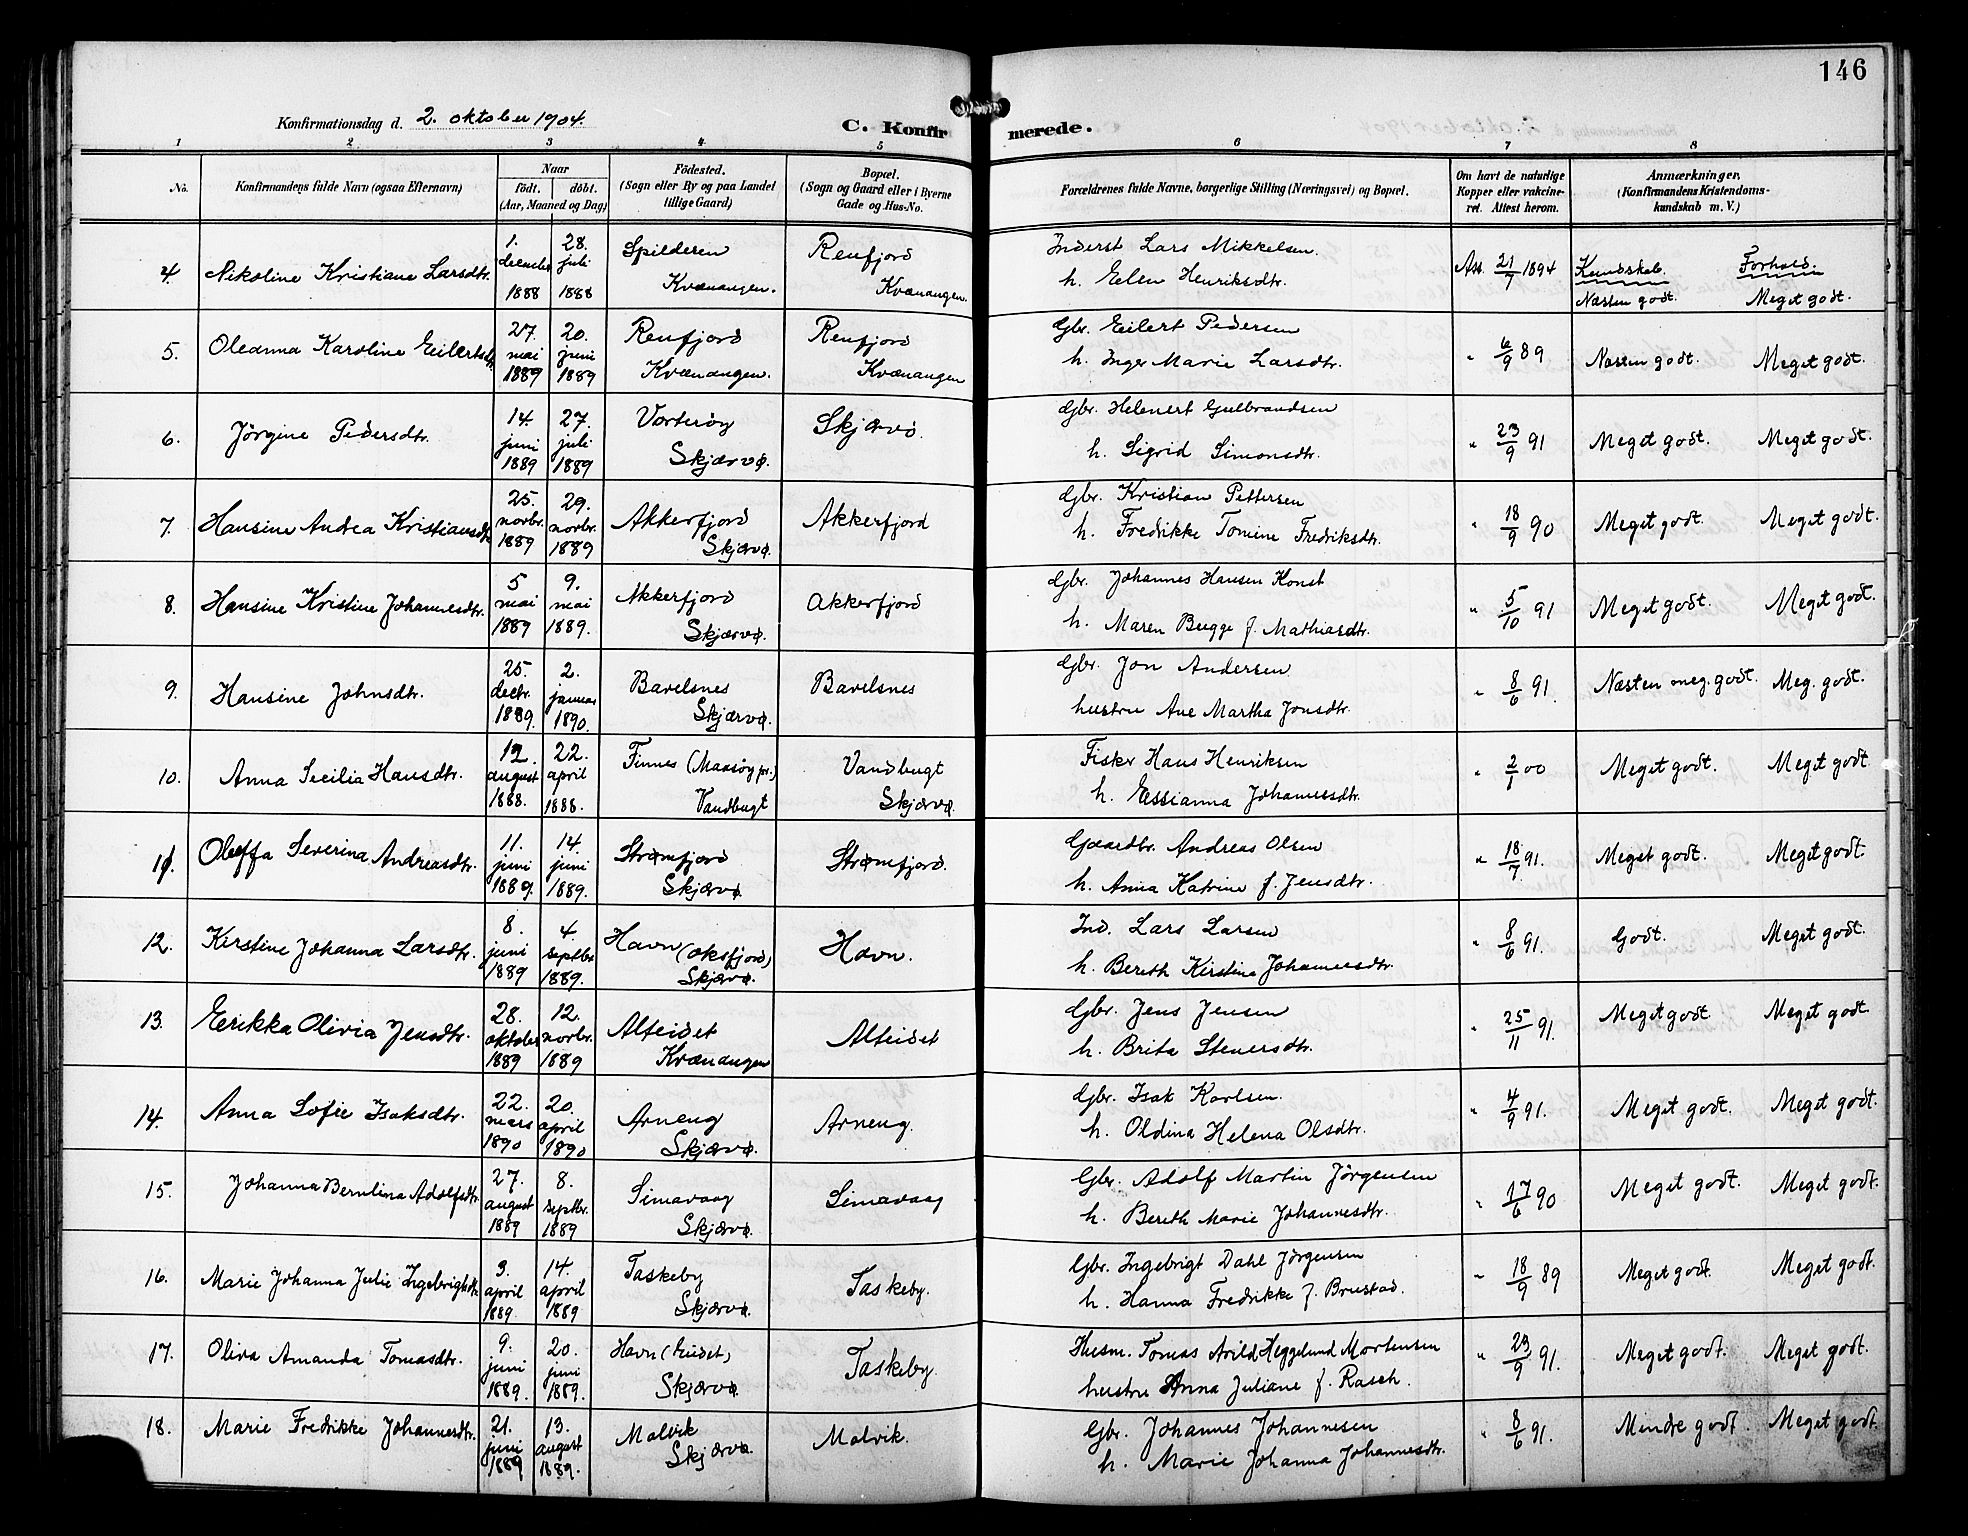 146
Konfirmationsdag d. 2. oktober 1904.
C. Konfirmerede.
1 2 3 4. 5 6 7 8
No. Konfirmandens fulde Navn (ogsaa Efternavn) Naar født. døbt. (Aar, Maaned og Dag) Fødested. (Sogn eller By og paa Landet tillige Gaard) Bopæl. (Sogn og Gaard eller i Byerne Gade og Hus-No. Forældrenes fulde Navne, borgerlige Stilling (Næringsvei) og Bopæl. Om havt de naturlige Kopper eller vakcineret. Attest herom. Anmærkninger, (Konfirmandens Kristendomskundskab m. V.)
4. Nikoline Kristiane Larsdtr. 1. december 1888 28. juli 1888 Spilderen Kvænangen. Renfjord Kvænangen. Inderst Lars Mikkelsen. h. Elen Henriksdtr. Att. 21/7 1894 Kundskab. Næsten godt. Forhold. Meget godt.
5. Oleanna Karoline Eilertsdtr. 27. mai 1889 20. juni 1889 Renfjord Kvænangen. Renfjord Kvænangen Gbr. Eilert Pedersen h. Inger Marie Larsdtr. " 6/9 89 Næsten godt. Meget godt.
6. Jörgine Pedersdtr. 14. juni 1889 27. juli 1889 Vorterøy Skjærvø. Skjærvø. Gbr. Helmert Gulbrandsen h. Sigrid Simonsdtr. " 23/9 91 Meget godt. Meget godt.
7. Hansine Andrea Kristiansdtr. 25. novbr. 1889 29. novbr. 1889 Akkerfjord Skjærvø. Akkerfjord Gbr. Kristian Pettersen h. Fredrikke Tomine Fredriksdtr. " 18/9 90 Meget godt. Meget godt.
8. Hansine Kristine Johannesdtr. 5 mai 1889 9. mai 1889. Akkerfjord Skjærvø. Akkerfjord Gbr. Johannes Hansen Konst h. Maren Bugge f. Mathiasdtr. " 5/10 91 Meget godt. Meget godt.
9. Hansine Johnsdtr. 25. decbr. 1889. 2. januar 1890. Bavelsnes Skjærvø. Bavelsnes Gbr. Jon Andersen hustru Ane Martha Jonsdtr. " 8/6 91. Næsten meg. godt. Meg. godt.
10. Anna Secilia Hansdtr. 12. august 1888. 22. april 1888. Finnes (Maasøy pr.) Vandbugt Vandbugt Skjærvø. Fisker Hans Henriksen h. Essianna Johannesdtr. " 2/1 00 Meget godt. Meget godt.
11. Oleffa Severina Andreasdtr. 11. juni 1889. 14. juni 1889. Strømfjord Skjærvø. Strømfjord. Gaardbr. Andreas Olsen h. Anna Katrine f. Jensdtr. " 18/7 91. Meget godt. Meget godt.
12. Kirstine Johanna Larsdtr. 8. juni 1889 4. septbr. 1889. Havn (Oksfjord) Skjærvø. Havn. Ind. Lars Larsen h. Bereth Kirstine Johannesdtr. " 8/6 91. Godt. Meget godt.
13. Erikka Olivia Jensdtr. 28. oktober 1889 12. novbr. 1889 Alteidet Kvænangen Alteidet Gbr. Jens Jensen h. Brita Stenersdtr. " 25/11 91. Meget godt. Meget godt.
14. Anna Sofie Isaksdtr. 22. mars 1890 20. april 1890 Arneng Skjærvø. Arneng. Gbr. Isak Karlsen. h. Oldina Helena Olsdtr. " 4/9 91. Meget godt. Meget godt.
15. Johanna Berntina Adolfsdtr. 27. august 1889 8. septbr. 1889 Simavaag Skjærvø. Simavaag Gbr. Adolf Martin Jörgensen h. Bereth Marie Johannesdtr. " 17/6 90 Meget godt. Meget godt.
16. Marie Johanna Julie Ingebrigtsdtr. 3. april 1889. 14. april 1889 Taskeby Skjærvø. Taskeby. Gbr. Ingebrigt Dahl Jörgensen h. Hanna Fredrikke f. Brustad. " 18/9 89 Meget godt. Meget godt.
17. Oliva Amanda Tomasdtr. 9. juni 1889. 20. juni 1889. Havn (Eidet) Skjærvø. Taskeby. Husm. Tomas Arild Heggelund Mortensen hustru Anna Juliane f. Rasch. " 23/9 91. Meget godt. Meget godt.
18. Marie Fredrikke Johannesdtr. 21. juni 1889 13. august 1889. Malvik Skjærvø. Malvik. Gbr. Johannes Johannesen h. Marie Johanna Johannesdtr. " 8/6 91. Mindre godt. Meget godt.